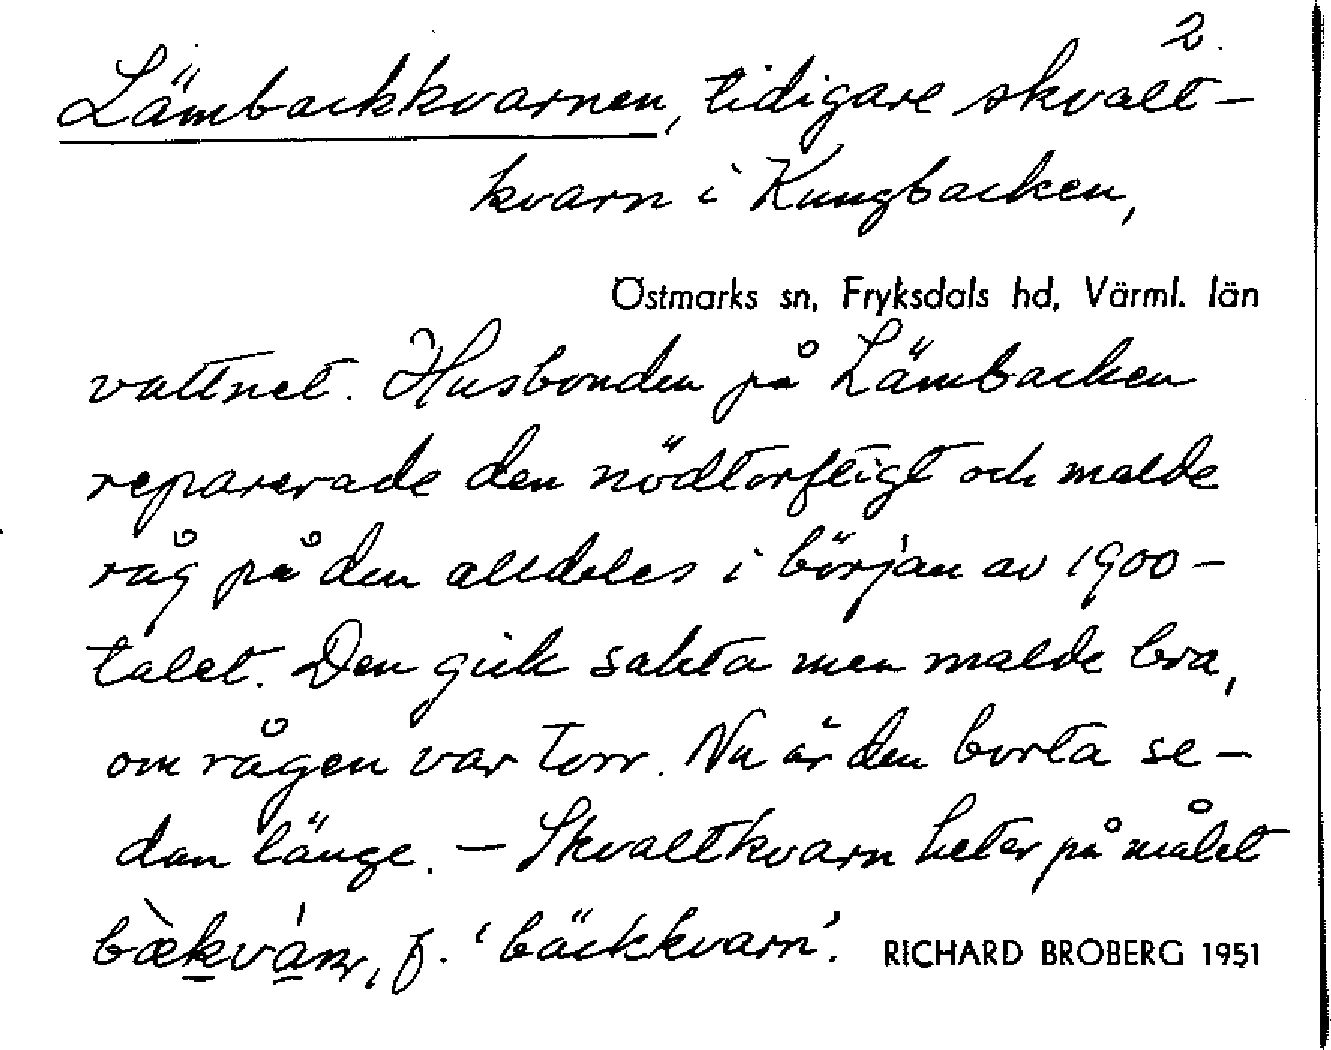 2.
Lämbackkvarnen, tidigare skvalt-
kvarn i Kungbacken,
Östmarks sn, Fryksdals hd, Värml. län
vattnet. Husbonden på Lämbacken
reparerade den nödtorftigt och malde
råg på den alldeles i början av 1900-
talet. Den gick sakta men malde bra,
om rågen var torr. Nu är den borta se-
dan länge. – Skvaltkvarn heter på målet
f. 'bäckkvarn'. RICHARD BROBERG 1951